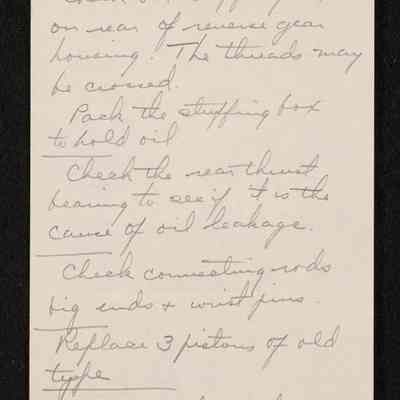 on rear of reverse gear
housing. The threads may
be crossed.
Pack the stuffing box
to hold oil
Check the rear thrust
bearing to see if it is the
cause of oil leakage.
Check connecting rods
big ends + wrist pins.
Replace 3 pistons of old
type